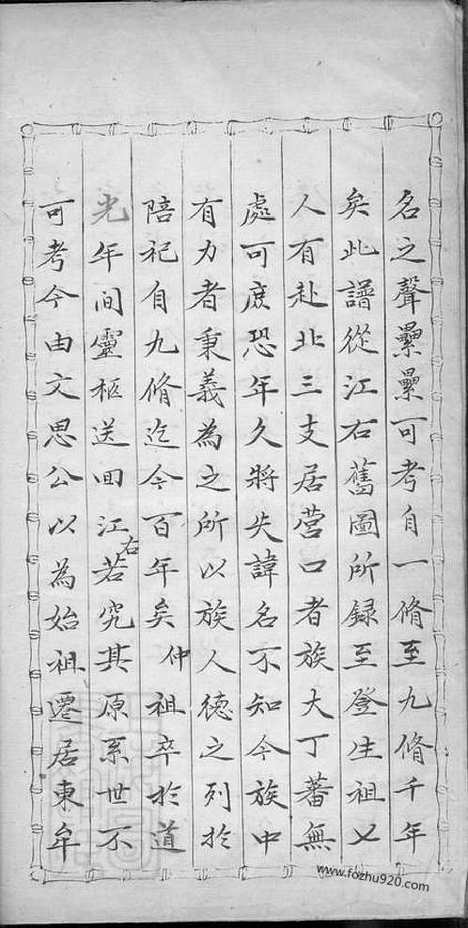 名之聲纍纍可考自一脩至九脩千年
矣此譜從江右舊圖所録至登生祖乂
人有赴北三支居营口者族大丁蕃無
處可度恐年久將失諱名不知今族中
有力者秉義為之所以族人德之列於
陪祀自九脩迄今百年矣仲祖卒於道
光年间靈柩送回江右若究其原系世不
可考今由文思公以為始祖遷居東牟
www.fozhu920.com